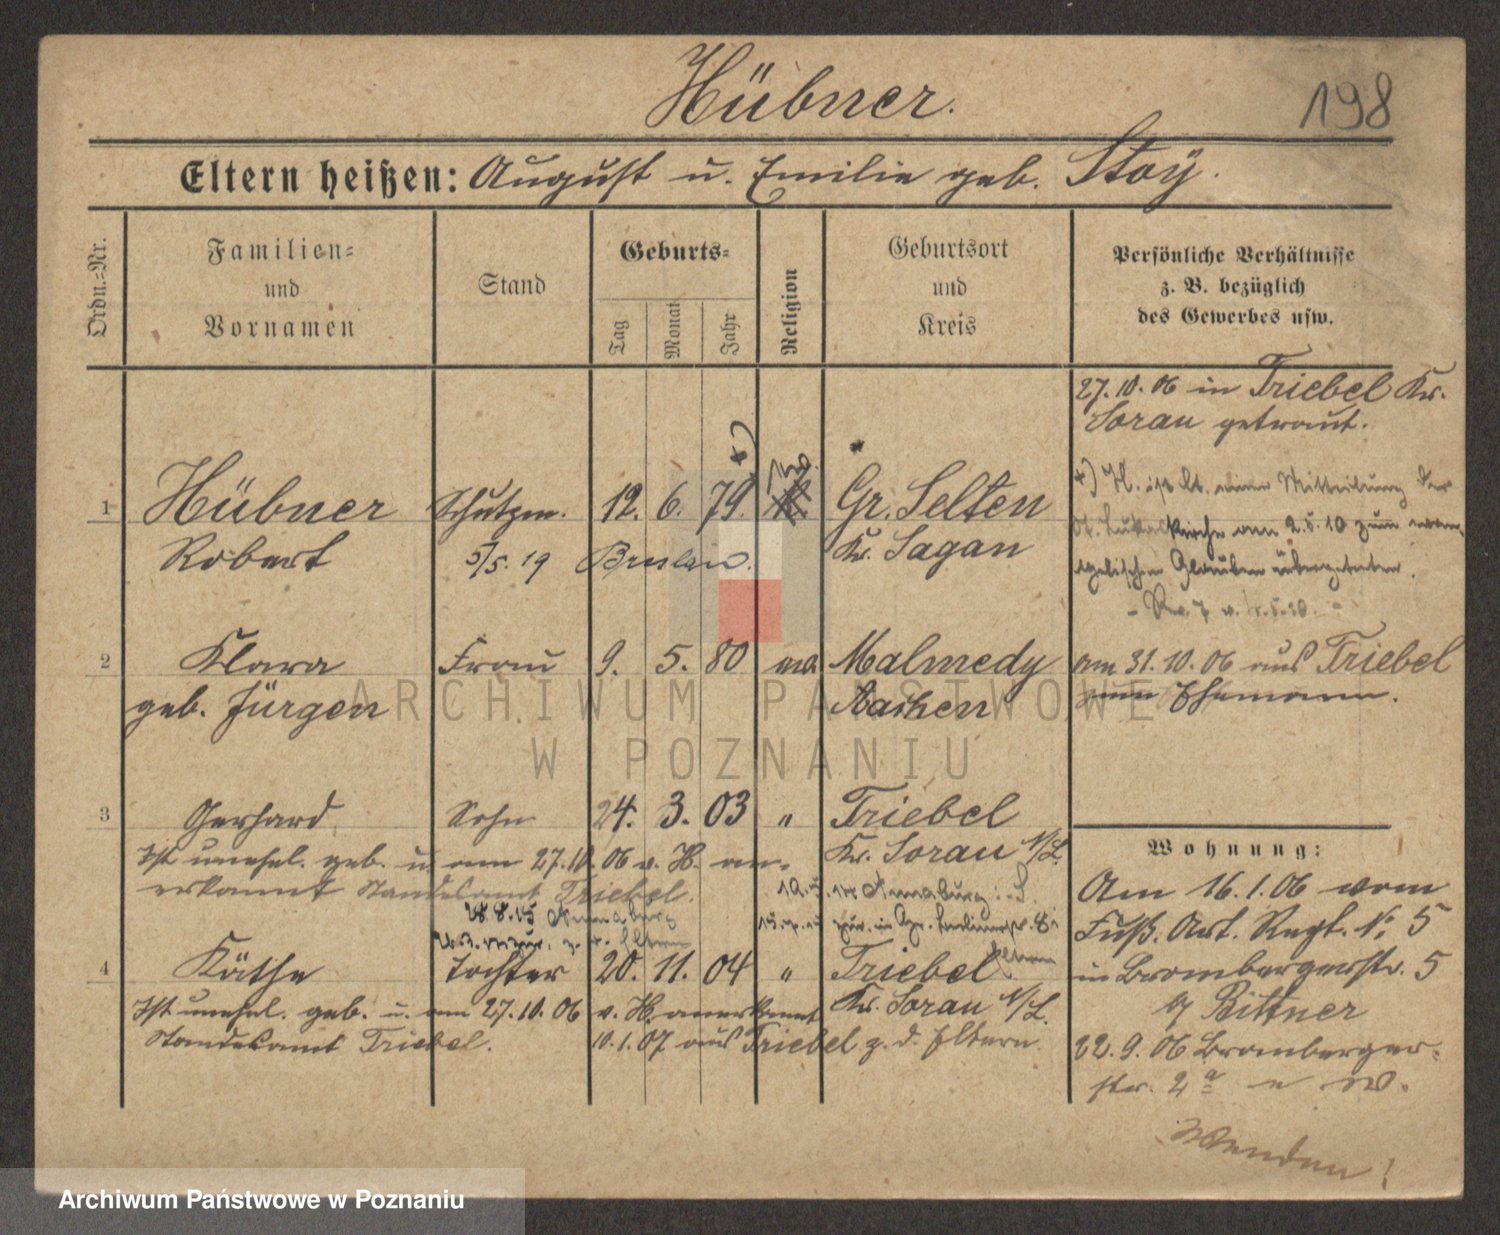 Hübner.
198
Eltern heißen: August u. Emilie geb. Stoÿ.
Ordn.-Nr.
Familien-
und
Vornamen
Stand
Geburts-
Tag
Monat
Jahr
Religion
Geburtsort
und
Kreis
Persönliche Verhältnisse
z. B. bezüglich
des Gewerbes usw.
27.10.06 in Triebel Kr.
Sorau getraut.
1 Hübner Schutzm. 12. 6. 79. *) Gr. Selten
Robert 5/5. 19 Breslau. Kr. Sagan
*) H. ist lt. einer Mitteilung der
St. Lukaskirche am 2.5.10 zum evan-
gelischen Glauben übergetreten.
2 Klara Frau 9. 5. 80 ev. Malmedy
geb. Jürgen Aachen
am 31.10.06 aus Triebel
zum Ehemann.
3 Gerhard Sohn 24. 3. 03 " Triebel
Kr. Sorau N/L.
Ist unehel. geb. u. am 27.10.06 v. H. an-
erkannt Standesamt Triebel.
28.8.15 Annaburg
z. d. Eltern
Annaburg
4 Käthe Tochter 20. 11. 04 " Triebel
Kr. Sorau N/L.
Ist unehel. geb. u. am 27.10.06 v. H. anerkannt
Standesamt Triebel. 10.1.07 aus Triebel z. d. Eltern
Wohnung:
Am 16.1.06 vom
Fuß. Art. Regt. No 5
in Brombergerstr. 5
b/ Bittner
22.9.06 Bromberger-
str. 2a
Wenden!
ARCHIWUM PAŃSTWOWE
W POZNANIU
Archiwum Państwowe w Poznaniu